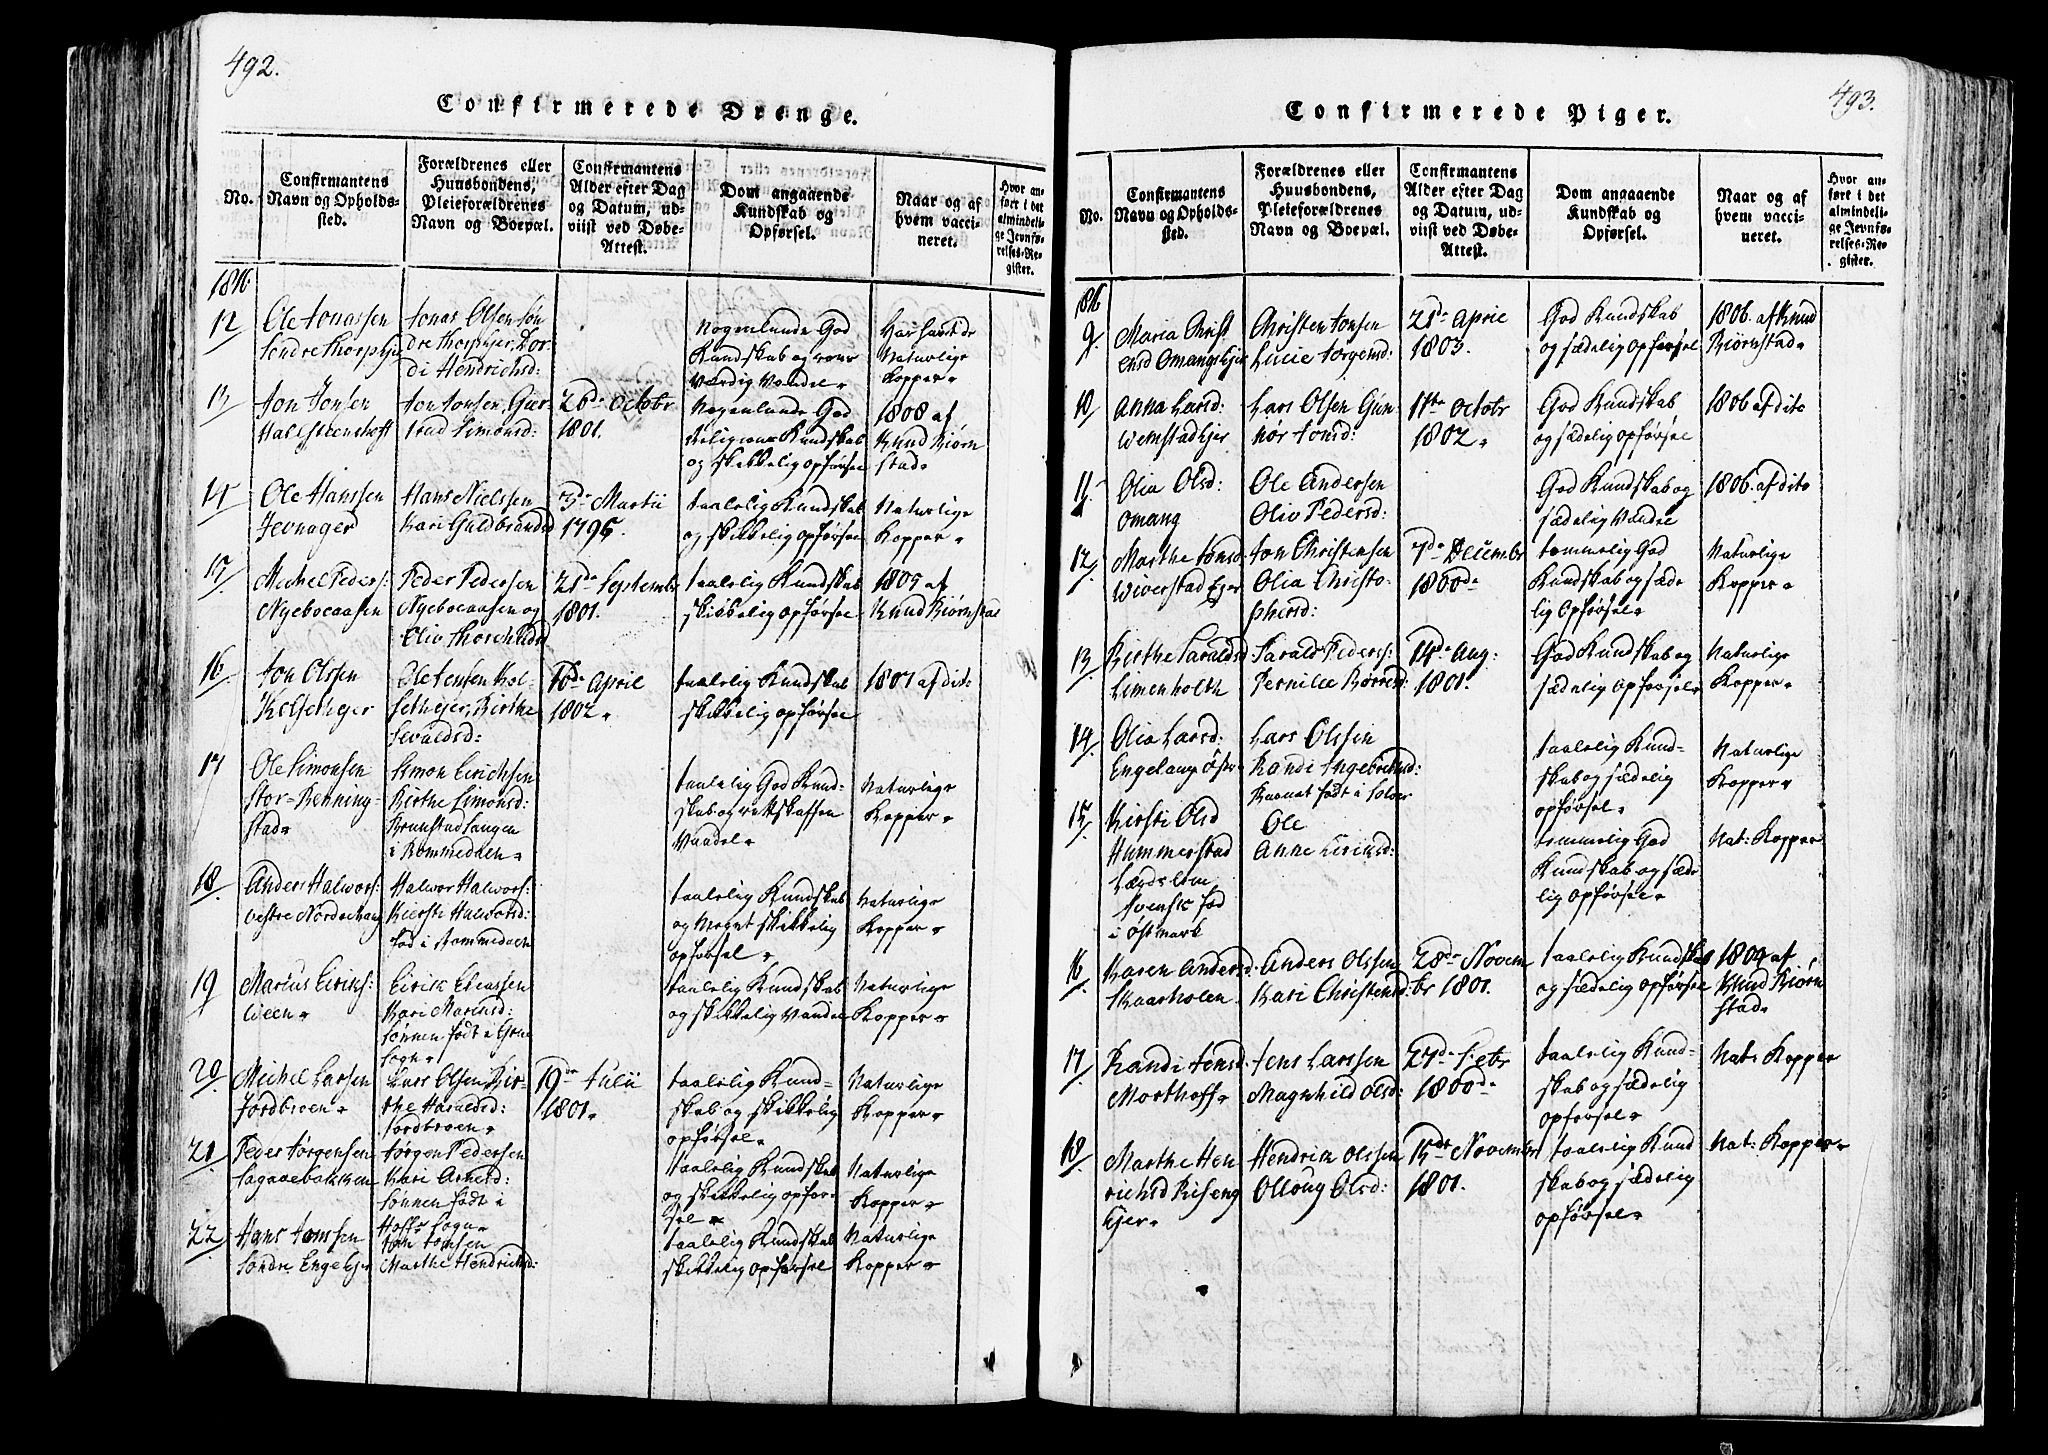 492.
Confirmerede Drenge.
No.
Confirmantens
Navn og Opholds-
sted.
Forældrenes eller
Huusbondens,
Pleieforældrenes
Navn og Boepæl.
Confirmantens
Alder efter Dag
og Datum, ud-
viist ved Døbe-
Attest.
Dom angaaende
Kundskab og
Opførsel.
Naar og af
hvem vacci-
neret.
Hvor an-
ført i det
almindeli-
ge Jevnfø-
relses-Re-
gister.
1816
12
Ole Jonassen
Jonas Olsen Søn
Hendrichsd:
Nogenlunde God
Kundskab og
Værdig Vandel
Har havt de
Naturlige
Kopper
13
Jon Jonsen
Jon Jonsen, Gur
Simonsd:
26de Octobr
1801.
Nogenlunde God
Religions Kundskab
og skikkelig opførsel
1808 af
Knud Biørn
stad
14
Ole Hanssen
Hevnager
Hans Nielssen
Kari Guldbrandsd
3de Martii
1796.
taalelig Kundskab
og skikkelig opførsel
Naturlige
Kopper
15
Michel Peders:
Nyeboeaasen
Peder Pedersen
Nyeboeaasen og
Oliv
21de Septembr
1801.
taalelig Kundskab
skikkelig opførsel
1805 af
Knud Biørnstad
16
Jon Olssen
Ole Jensen
Birthe
Sevaldsd:
10de April
1802
taalelig Kundskab
skikkelig opførsel
1807 af dit:
17
Ole Simonsen
Stor-Renning-
stad
Simon Eirichsen
Birthe Simonsd:
i Rommedalen
taalelig God Kund-
skab og rettskaffen
Vandel
Naturlige
Kopper
18
Anders Halvors:
vestre Nordschaug
Halvor Halvors:
Kiersti Halvorsd:
fød i Rommedalen
taalelig Kundskab
og Meget skikkelig
opførsel
Naturlige
Kopper
19
Marius Eirichs:
Lieen
Eirik Eliassen
Kari Mariusd:
Sønnen født i
Sogn
taalelig Kundskab
og skikkelig Vandel
Naturlige
Kopper
20
Michel Larsen
Jordbroen
Lars Olsen, Bir-
the Haraldsd:
Jordbroen
19de Julii
1801
taalelig Kund-
skab og skikkelig
opførsel
Naturlige
Kopper
21
Peder Jørgensen
Sagaaebakken
Jørgen Pedersen
Kari Arnesd:
Sønnen født i
Hoffs Sogn
taalelig Kundskab
og skikkelig opfør-
sel
Naturlige
Kopper
22
Hans Jonssen
Søndre Enge Ejer
Jon Jonsen
Marthe Hendrichsd:
taalelig Kundskab
skikkelig opførsel
Naturlige
Kopper
493.
Confirmerede Piger.
No.
Confirmantens
Navn og Opholds-
sted.
Forældrenes eller
Huusbondens,
Pleieforældrenes
Navn og Boepæl.
Confirmantens
Alder efter Dag
og Datum, ud-
viist ved Døbe-
Attest.
Dom angaaende
Kundskab og
Opførsel.
Naar og af
hvem vacci-
neret.
Hvor an-
ført i det
almindeli-
ge Jevnfø-
relses-Re-
gister.
1816
9
Maria Christ
ensd Omangs Ejer
Christen Jonsen
Lucie Jorgensd:
21de April
1803.
God Kundskab
og sædelig opførsel
1806. af Knud
Biørnstad
10
Anna Larsd:
Wemstad Ejer
Lars Olsen Gun
hør Jonsd:
11te Octobr
1802
God Kundskab
og sædelig opførsel
1806 af dito
11
Olia Olsd:
Omang
Ole Andersen
Oliv Pedersd:
God Kundskab og
sædelig Vandel
1806. af dito
12
Marthe Jonsd
Wiverstad Ejer
Jon Christensen
Olia Christo-
phersd:
7de Decembr
1800de
temmelig God
Kundskab og sæde
lig Opførsel
Naturlige
Kopper
13
Birthe Haraldsd
Simenholth
Harald Peders:
Pernille
14de Aug:
1801.
God Kundskab og
sædelig opførsel
Naturlige
Kopper
14
Olia Larsd:
Engelaug Øster
Lars Olssen
Randi Ingebretsd:
Barnet født i Soløer
taalelig Kund-
skab og sædelig
opførsel
Naturlige
Kopper
15
Kirsti Olsd
Hummerstad
Svensk fød
i Østmark
Ole
Anne Eiriksd:
temmelig God
Kundskab og sæde-
lig opførsel
Nat: Kopper
16
Karen Andersd.
Skaarholen
Anders Olssen
Kari Christensd:
28de Novem
br 1801.
taalelig Kundskab
og sædelig opførsel
1804 af
Knud Biørn
stad
17
Randi Jensd
Morthoff
Jens Larssen
Magnhild Olsd:
27de Febr
1800de
taalelig Kund-
skab og sædelig
opførsel
Nat: Kopper
18
Marthe Hen
richsd Riseng
Ejer
Hendrik Olssen
Olloug Olsd:
15de Novembr
1801.
taalelig Kund
skab og sædelig
opførsel
Nat: Kopper